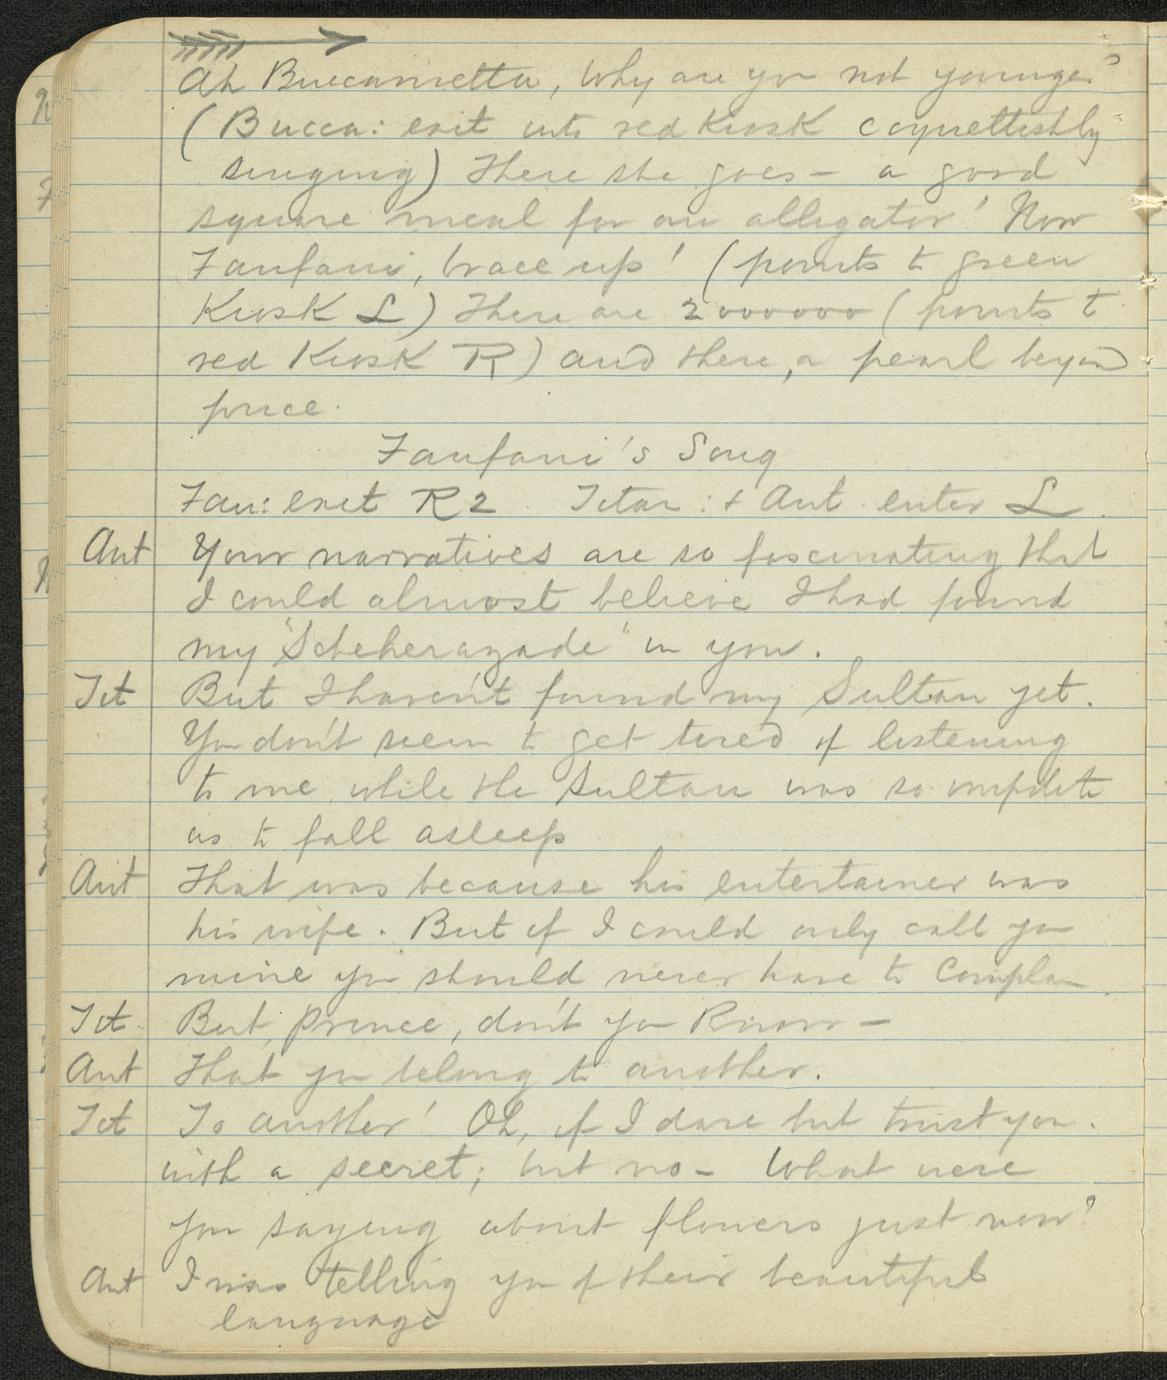 Ah Buccametta, Why are you not younger?
(Bucca: exit into red Kiosk coquettishly
singing) There she goes — a good
square meal for an alligator! Now
Fanfani, brace up! (points to green
Kiosk L) There are 2000000 (points to
red Kiosk R) and there, a pearl beyond
price.
Fanfani's Song
Fan: exit R2 Titan: + Ant enter L.
Ant Your narratives are so fascinating that
I could almost believe I had found
my "Scheherazade" in you.
Tit But I haven't found my Sultan yet.
You don't seem to get tired of listening
to me, while the Sultan was so impolite
as to fall asleep
Ant That was because his entertainer was
his wife. But if I could only call you
mine you should never have to Complain
Tit But, Prince, don't you Know —
Ant That you belong to another.
Tit To another! Oh, if I dare but trust you.
with a secret; but no — What were
you saying about flowers just now?
Ant I was telling you of their beautiful
language